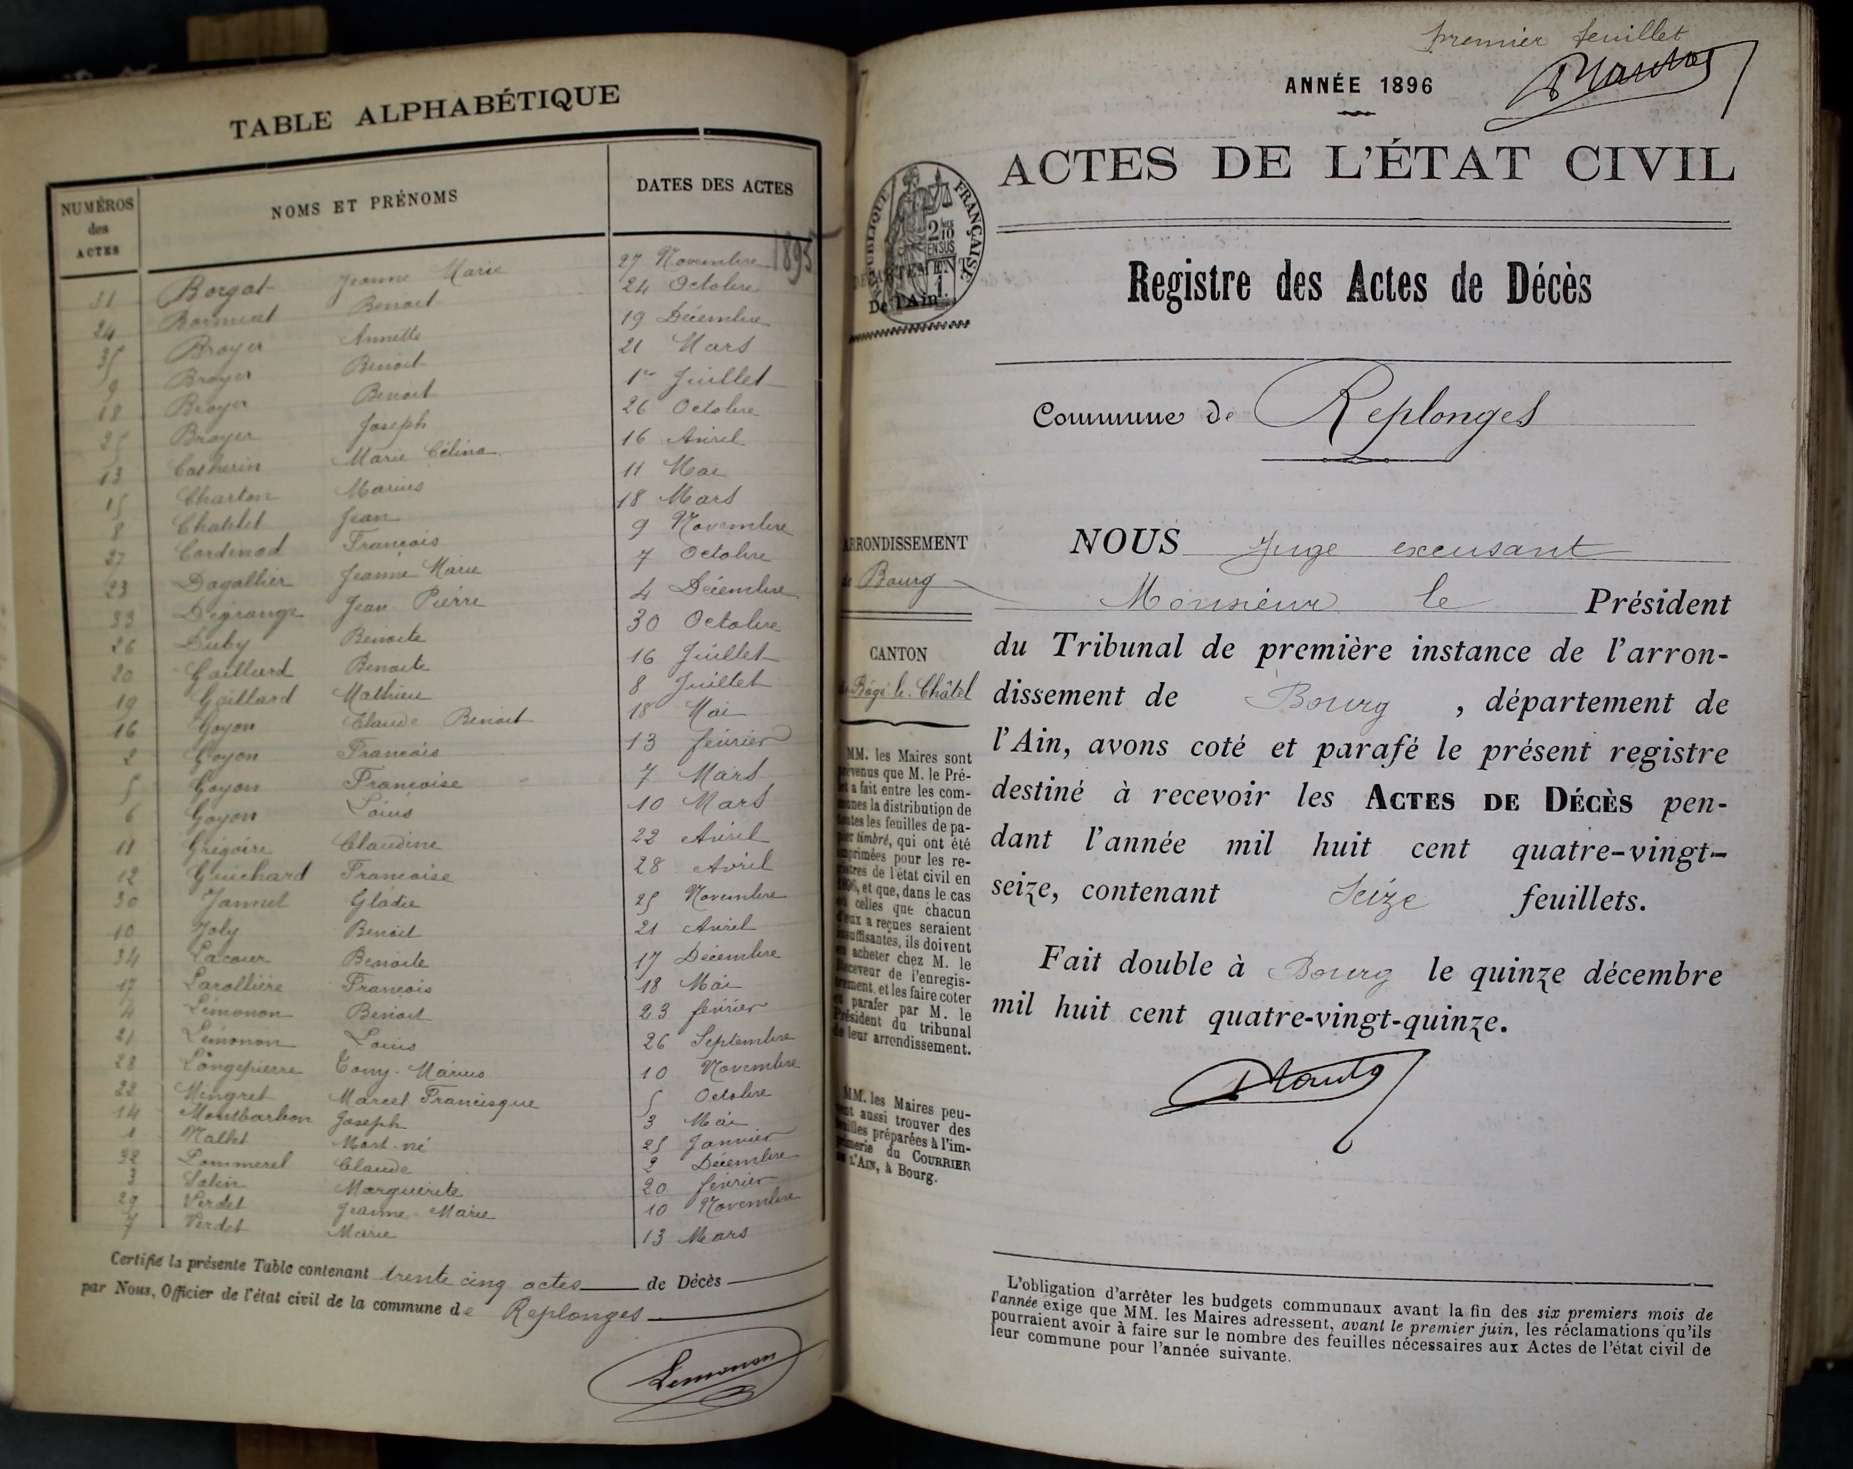 TABLE ALPHABÉTIQUE
NUMÉROS des ACTES
NOMS ET PRÉNOMS
DATES DES ACTES
1895
31 Borgat Jeanne Marie 27 Novembre
24 Benoit 24 Octobre
35 Broyer Annette 19 Décembre
9 Broyer Benoit 21 Mars
18 Broyer Benoit 1er Juillet
25 Broyer Joseph 26 Octobre
13 Catherin Marie Célina 16 Avril
15 Charton Marius 11 Mai
8 Chatelet Jean 18 Mars
27 Cardinad François 9 Novembre
23 Dagallier Jeanne Marie 7 Octobre
33 Dégrange Jean Pierre 4 Décembre
26 Duby Benoite 30 Octobre
20 Gaillard Benoite 16 Juillet
19 Gaillard Mathieu 8 Juillet
16 Goyon Claude Benoit 18 Mai
2 Goyon Francois 13 février
5 Goyon Francoise 7 Mars
6 Goyon Louis 10 Mars
11 Grégoire Claudine 22 Avril
12 Guichard Francoise 28 Avril
30 Jannet 25 Novembre
10 Joly Benoit 21 Avril
34 Lacour Benoite 17 Décembre
17 Larollière Francois 18 Mai
4 Lémonon Benoit 23 février
21 Lémonon Louis 26 Septembre
28 Longepierre Tony-Marius 10 Novembre
22 Mingret Marcel Francisque 5 Octobre
14 Montbarbon Joseph 3 Mai
1 Mallet Mort-né 25 Janvier
32 Pommerel Claude 2 Décembre
3 Marguerite 20 février
29 Verdet Jeanne-Marie 10 Novembre
7 Verdet Marie 13 Mars
Certifié la présente Table contenant trente cinq actes de Décès
par Nous, Officier de l'état civil de la commune de Replonges
Lemonon
premier feuillet
ANNÉE 1896
ACTES DE L'ÉTAT CIVIL
RÉPUBLIQUE FRANÇAISE
2/10 EN SUS
DÉPARTEMENT
De l'Ain
1
Registre des Actes de Décès
Commune de Replonges
ARRONDISSEMENT
de Bourg
CANTON
de Bâgé-le-Châtel
MM. les Maires sont
prévenus que M. le Pré-
fet a fait entre les com-
munes la distribution de
toutes les feuilles de pa-
pier timbré, qui ont été
imprimées pour les re-
gistres de l'état civil en
1896, et que, dans le cas
où celles que chacun
d'eux a reçues seraient
insuffisantes, ils doivent
en acheter chez M. le
Receveur de l'enregis-
trement, et les faire coter
et parafer par M. le
Président du tribunal
de leur arrondissement.
MM. les Maires peu-
vent aussi trouver des
feuilles préparées à l'im-
primerie du COURRIER
DE L'AIN, à Bourg.
NOUS Juge excusant
Monsieur le Président
du Tribunal de première instance de l'arron-
dissement de Bourg, département de
l'Ain, avons coté et parafé le présent registre
destiné à recevoir les ACTES DE DÉCÈS pen-
dant l'année mil huit cent quatre-vingt-
seize, contenant Seize feuillets.
Fait double à Bourg le quinze décembre
mil huit cent quatre-vingt-quinze.
L'obligation d'arrêter les budgets communaux avant la fin des six premiers mois de
l'année exige que MM. les Maires adressent, avant le premier juin, les réclamations qu'ils
pourraient avoir à faire sur le nombre des feuilles nécessaires aux Actes de l'état civil de
leur commune pour l'année suivante.